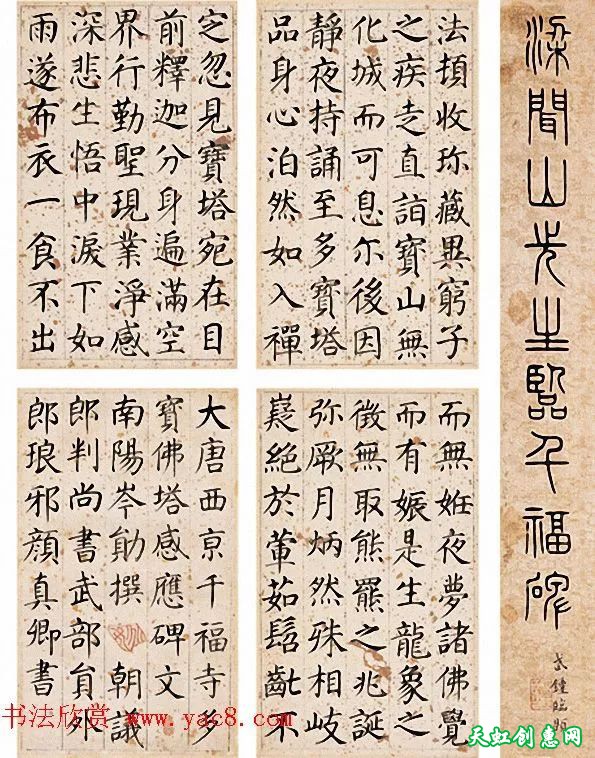 梁聞山先生臨千福碑
法頂收珎藏異窮子
之疾走直詣寶山無
化城而可息尔後因
靜夜持誦至多寶塔
品身心泊然如入禪
定忽見寶塔宛在目
前釋迦分身遍滿空
界行勤聖現業淨感
深悲生悟中淚下如
雨遂布衣一食不出
而無姙夜夢諸佛覺
而有娠是生龍象之
徵無取熊羆之兆誕
弥厥月炳然殊相岐
嶷絕於葷茹髫齔不
大唐西京千福寺多
寶佛塔感應碑文
南陽岑勛撰 朝議
郎判尚書武部員外
郎琅邪顏真卿書
书法欣赏 www.yac8.com
天虹创惠网